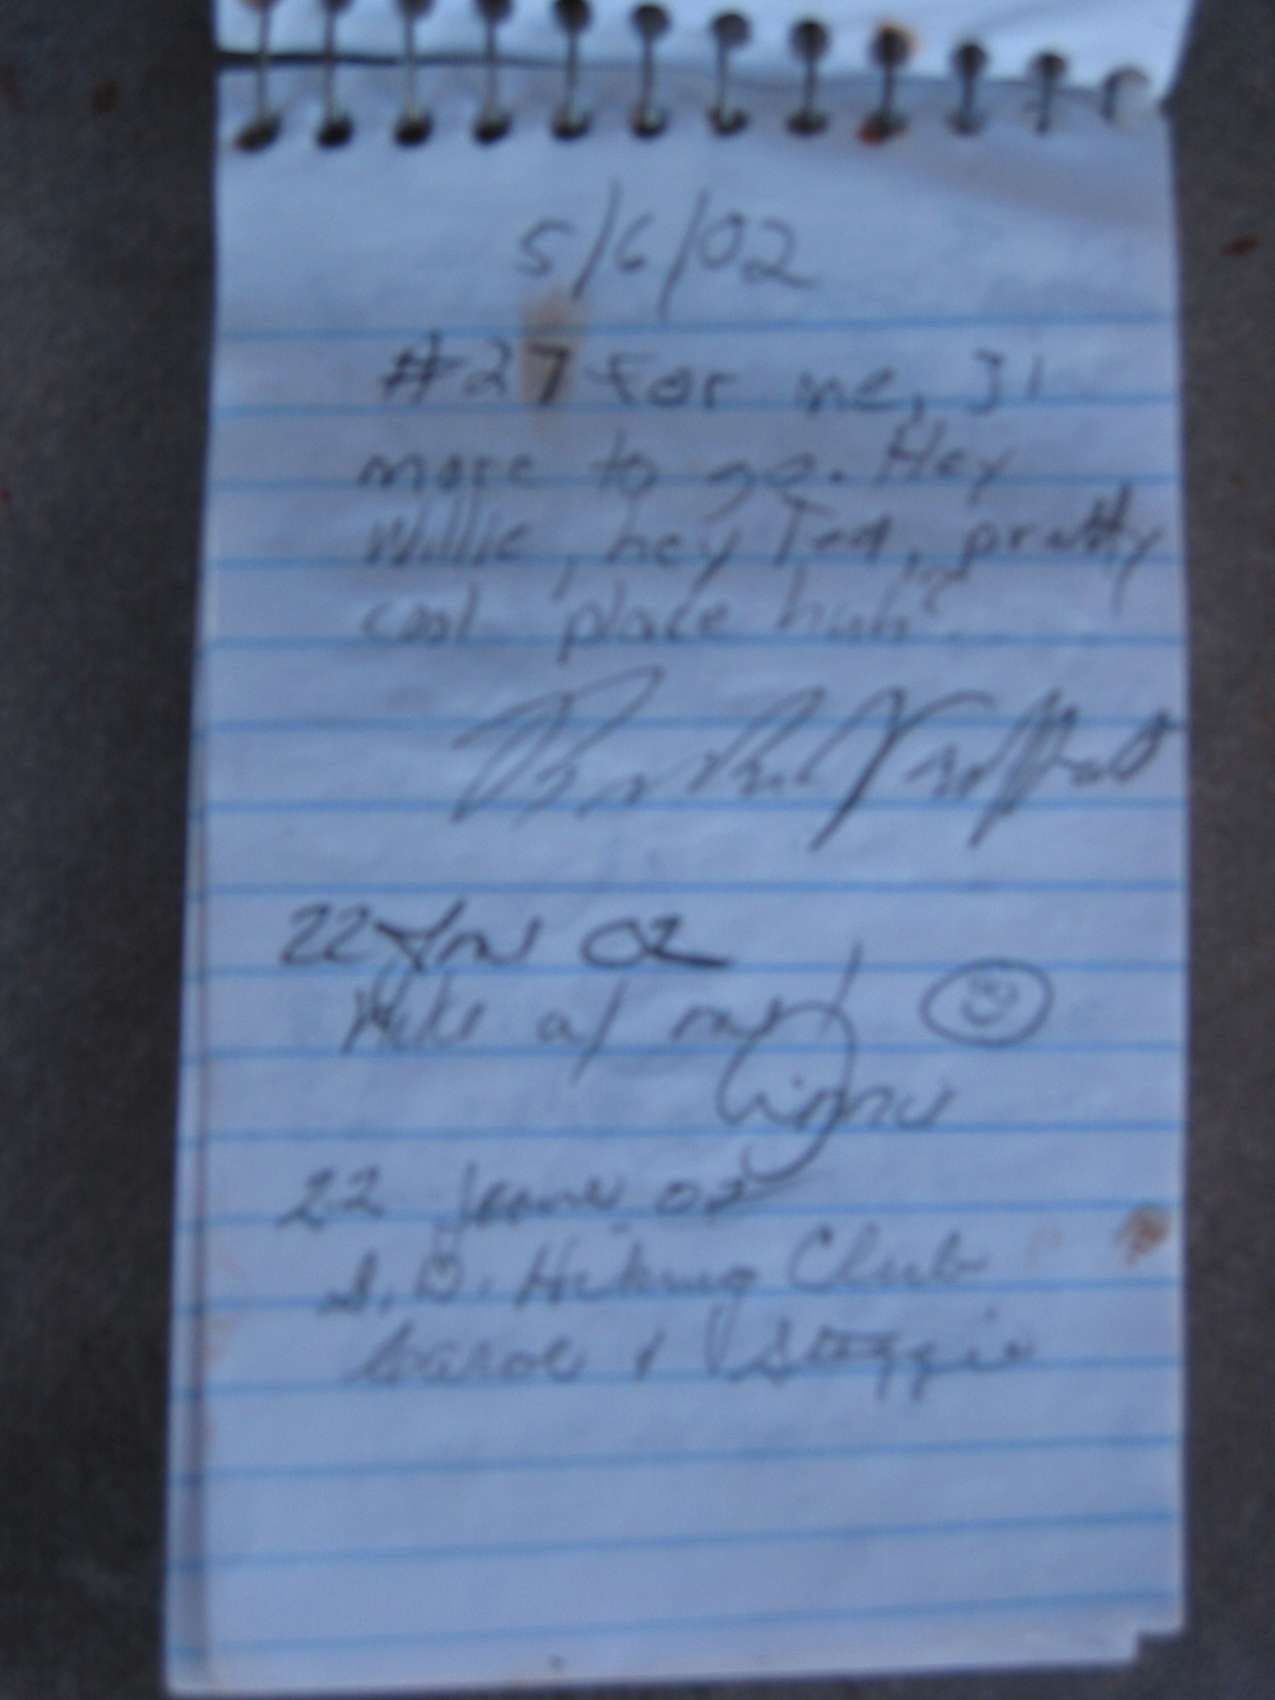 5/6/02
#27 for me, 31
more to go. Hey
Willie, hey Ted, pretty
cool place huh?
22 02
Hike w/ my
22 June 02
S.D. Hiking Club
Carol &